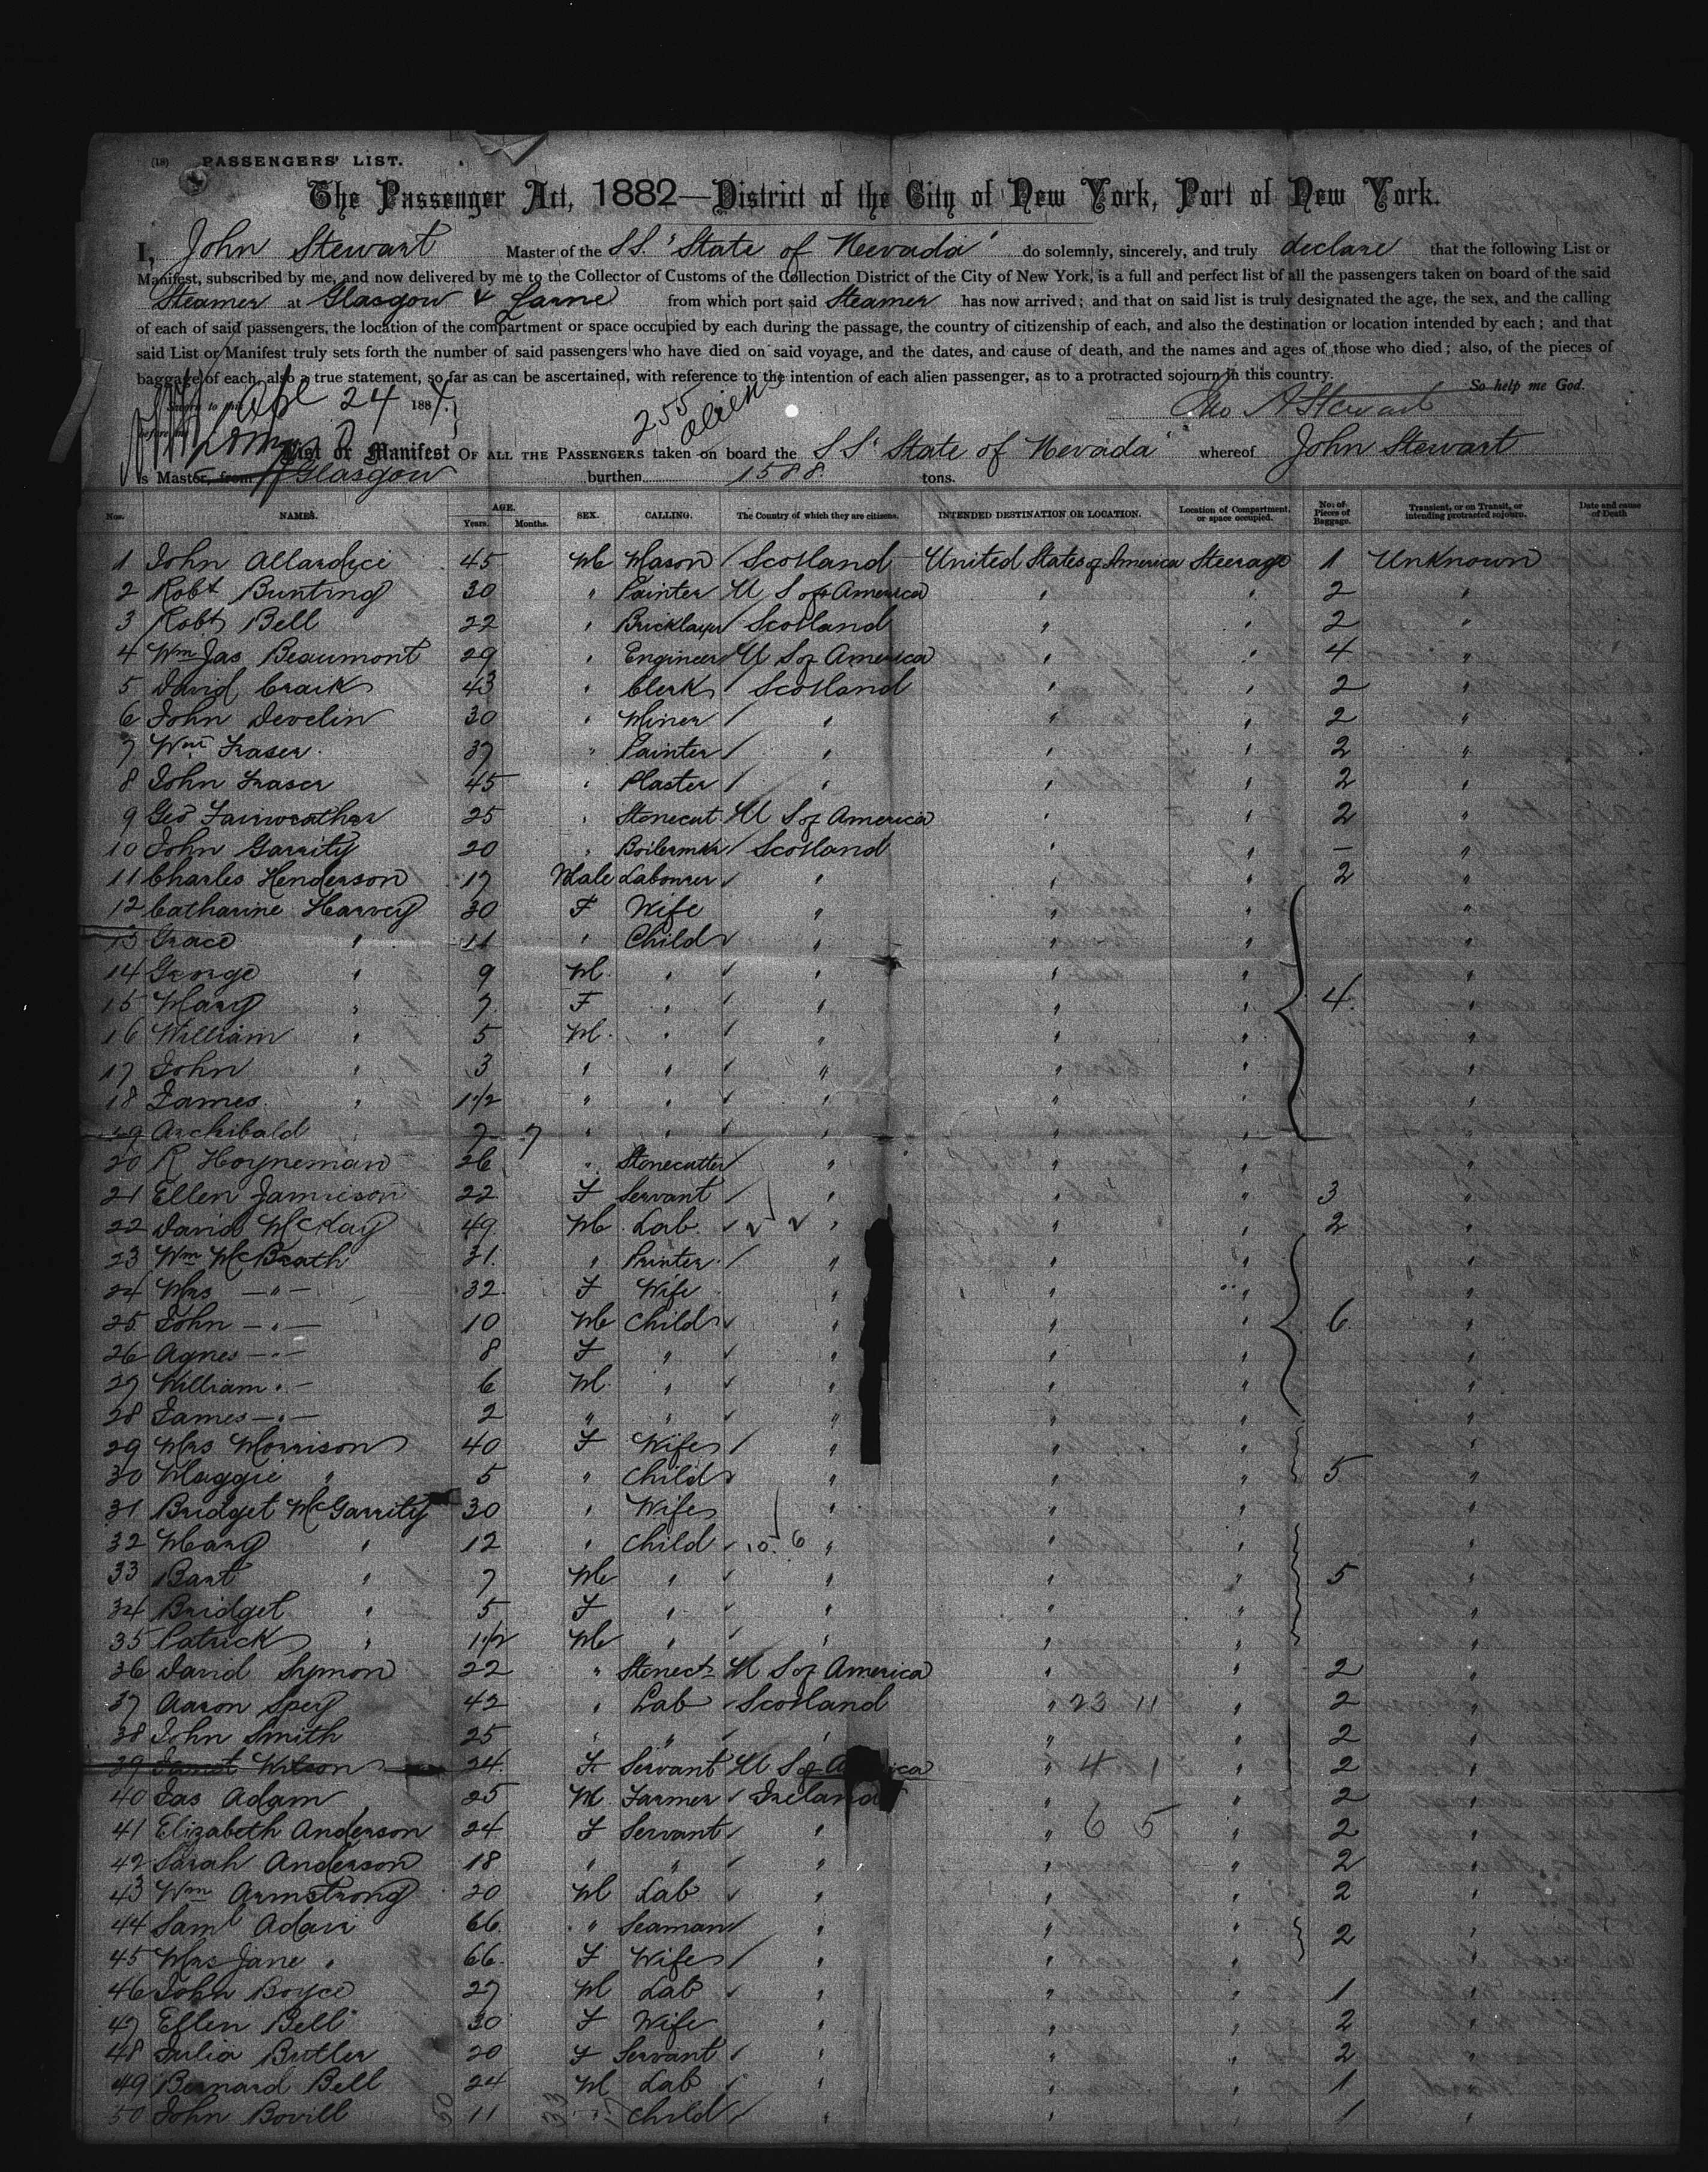 (18) PASSENGERS' LIST.
The Passenger Act, 1882—District of the City of New York, Port of New York.
I, John Stewart Master of the S.S. "State of Nevada" do solemnly, sincerely, and truly declare that the following List or
Manifest, subscribed by me, and now delivered by me to the Collector of Customs of the Collection District of the City of New York, is a full and perfect list of all the passengers taken on board of the said
Steamer at Glasgow & Larne from which port said Steamer has now arrived; and that on said list is truly designated the age, the sex, and the calling
of each of said passengers, the location of the compartment or space occupied by each during the passage, the country of citizenship of each, and also the destination or location intended by each; and that
said List or Manifest truly sets forth the number of said passengers who have died on said voyage, and the dates, and cause of death, and the names and ages of those who died; also, of the pieces of
baggage of each, also a true statement, so far as can be ascertained, with reference to the intention of each alien passenger, as to a protracted sojourn in this country.
So help me God.
Sworn to this 24 188
before me
255 aliens
Jno A Stewart
List or Manifest OF ALL THE PASSENGERS taken on board the S S "State of Nevada" whereof John Stewart
is Master, from Glasgow burthen 1588. tons.
Nos. NAMES. AGE. Years. Months. SEX. CALLING. The Country of which they are citizens. INTENDED DESTINATION OR LOCATION. Location of Compartment, or space occupied. No: of Pieces of Baggage. Transient, or on Transit, or intending protracted sojourn. Date and cause of Death
1 John Allardice 45 M Mason / Scotland United States of America Steerage 1 Unknown
2 Robt Bunting 30 " Painter U S of America " " 2 "
3 Robt Bell 22 " Bricklayer / Scotland " " 2 "
4 Wm Jas Beaumont 29 " Engineer U S of America " " 4 "
5 David Craik 43 " Clerk / Scotland " " 2 "
6 John Develin 30 " Miner / " " " 2 "
7 Wm Fraser 37 " Painter / " " " 2 "
8 John Fraser 45 " Plaster / " " " 2 "
9 Geo Fairweather 25 " Stonecut U S of America " " 2 "
10 John Garrity 20 " Boilermkr / Scotland " " — "
11 Charles Henderson 17 Male Labourer / " " " 2 "
12 Catharine Harvey 30 F Wife " " " "
13 Grace " 11 " Child / " " " "
14 George " 9 M. " / " " " "
15 Mary " 7 F " / " " " 4. "
16 William " 5 M. " / " " " "
17 John " 3 " " / " " " "
18 James " 1 1/2 " " / " " " "
19 Archibald " 7 " " / " " " "
20 R Hoyneman 26 " Stonecutter / " " " "
21 Ellen Jamieson 22 F Servant / " " " 3 "
22 David McKay 49 M Lab. / " " " 2 "
23 Wm McBrath 31. " Printer / " " " "
24 Mrs —"— 32 F Wife " " " "
25 John —"— 10 M Child / " " " 6. "
26 Agnes —"— 8 F " / " " " "
27 William "— 6 M. " / " " " "
28 James —"— 2 " " / " " " "
29 Mrs Morrison 40 F Wife / " " " "
30 Maggie " 5 " Child / " " " 5 "
31 Bridget McGarrity 30 " Wife " " " "
32 Mary " 12 " Child / 10. 6 " " " "
33 Bart " 7 M " / " " " 5 "
34 Bridget " 5 F " / " " " "
35 Patrick " 1 1/2 M " / " " " "
36 David Symon 22 " Stonect U S of America " " 2 "
37 Aaron Spey 42 " Lab / Scotland " 23 11 " 2 "
38 John Smith 25 " " / " " " 2 "
39 Janet Wilson 24. F Servant U S of America " 4 1 " 2 "
40 Jas Adam 25 M. Farmer / Ireland " " 2 "
41 Elizabeth Anderson 24 F Servant / " " 6 5 " 2 "
42 Sarah Anderson 18 " " / " " " 2 "
43 Wm Armstrong 20 M Lab / " " " 2 "
44 Saml Adair 66 " Seaman / " " " 2 "
45 Mrs Jane " 66 F Wife / " " " "
46 John Boyce 27 M Lab / " " " 1 "
47 Ellen Bell 30 F Wife " " " 2 "
48 Julia Butler 20 F Servant / " " " 2 "
49 Bernard Bell 24 M Lab / " " " 1 "
50 John Bovill 11 " Child / " " " 1 "